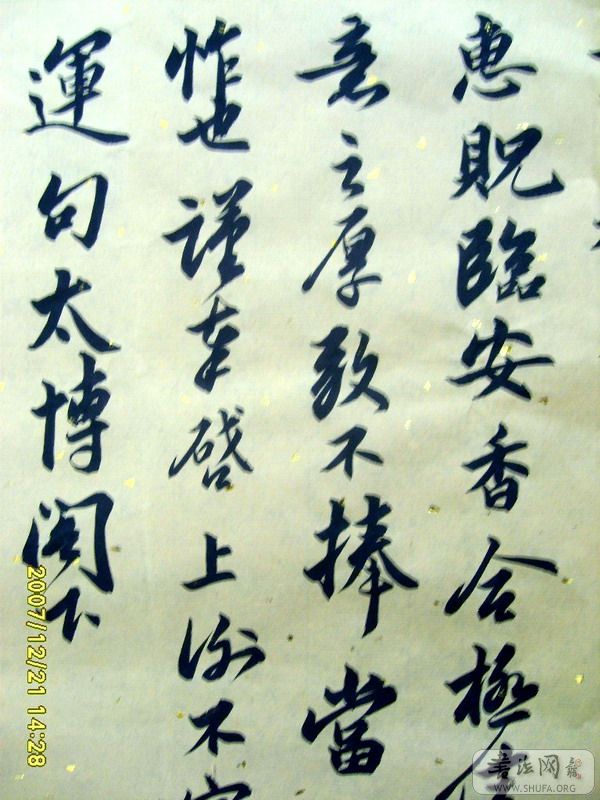 惠貺臨安香合極
意之厚敢不捧當
怍也謹奉啓上謝不宣
運句太博閣下
2007/12/21 14:28
书法网
WWW.SHUFA.ORG